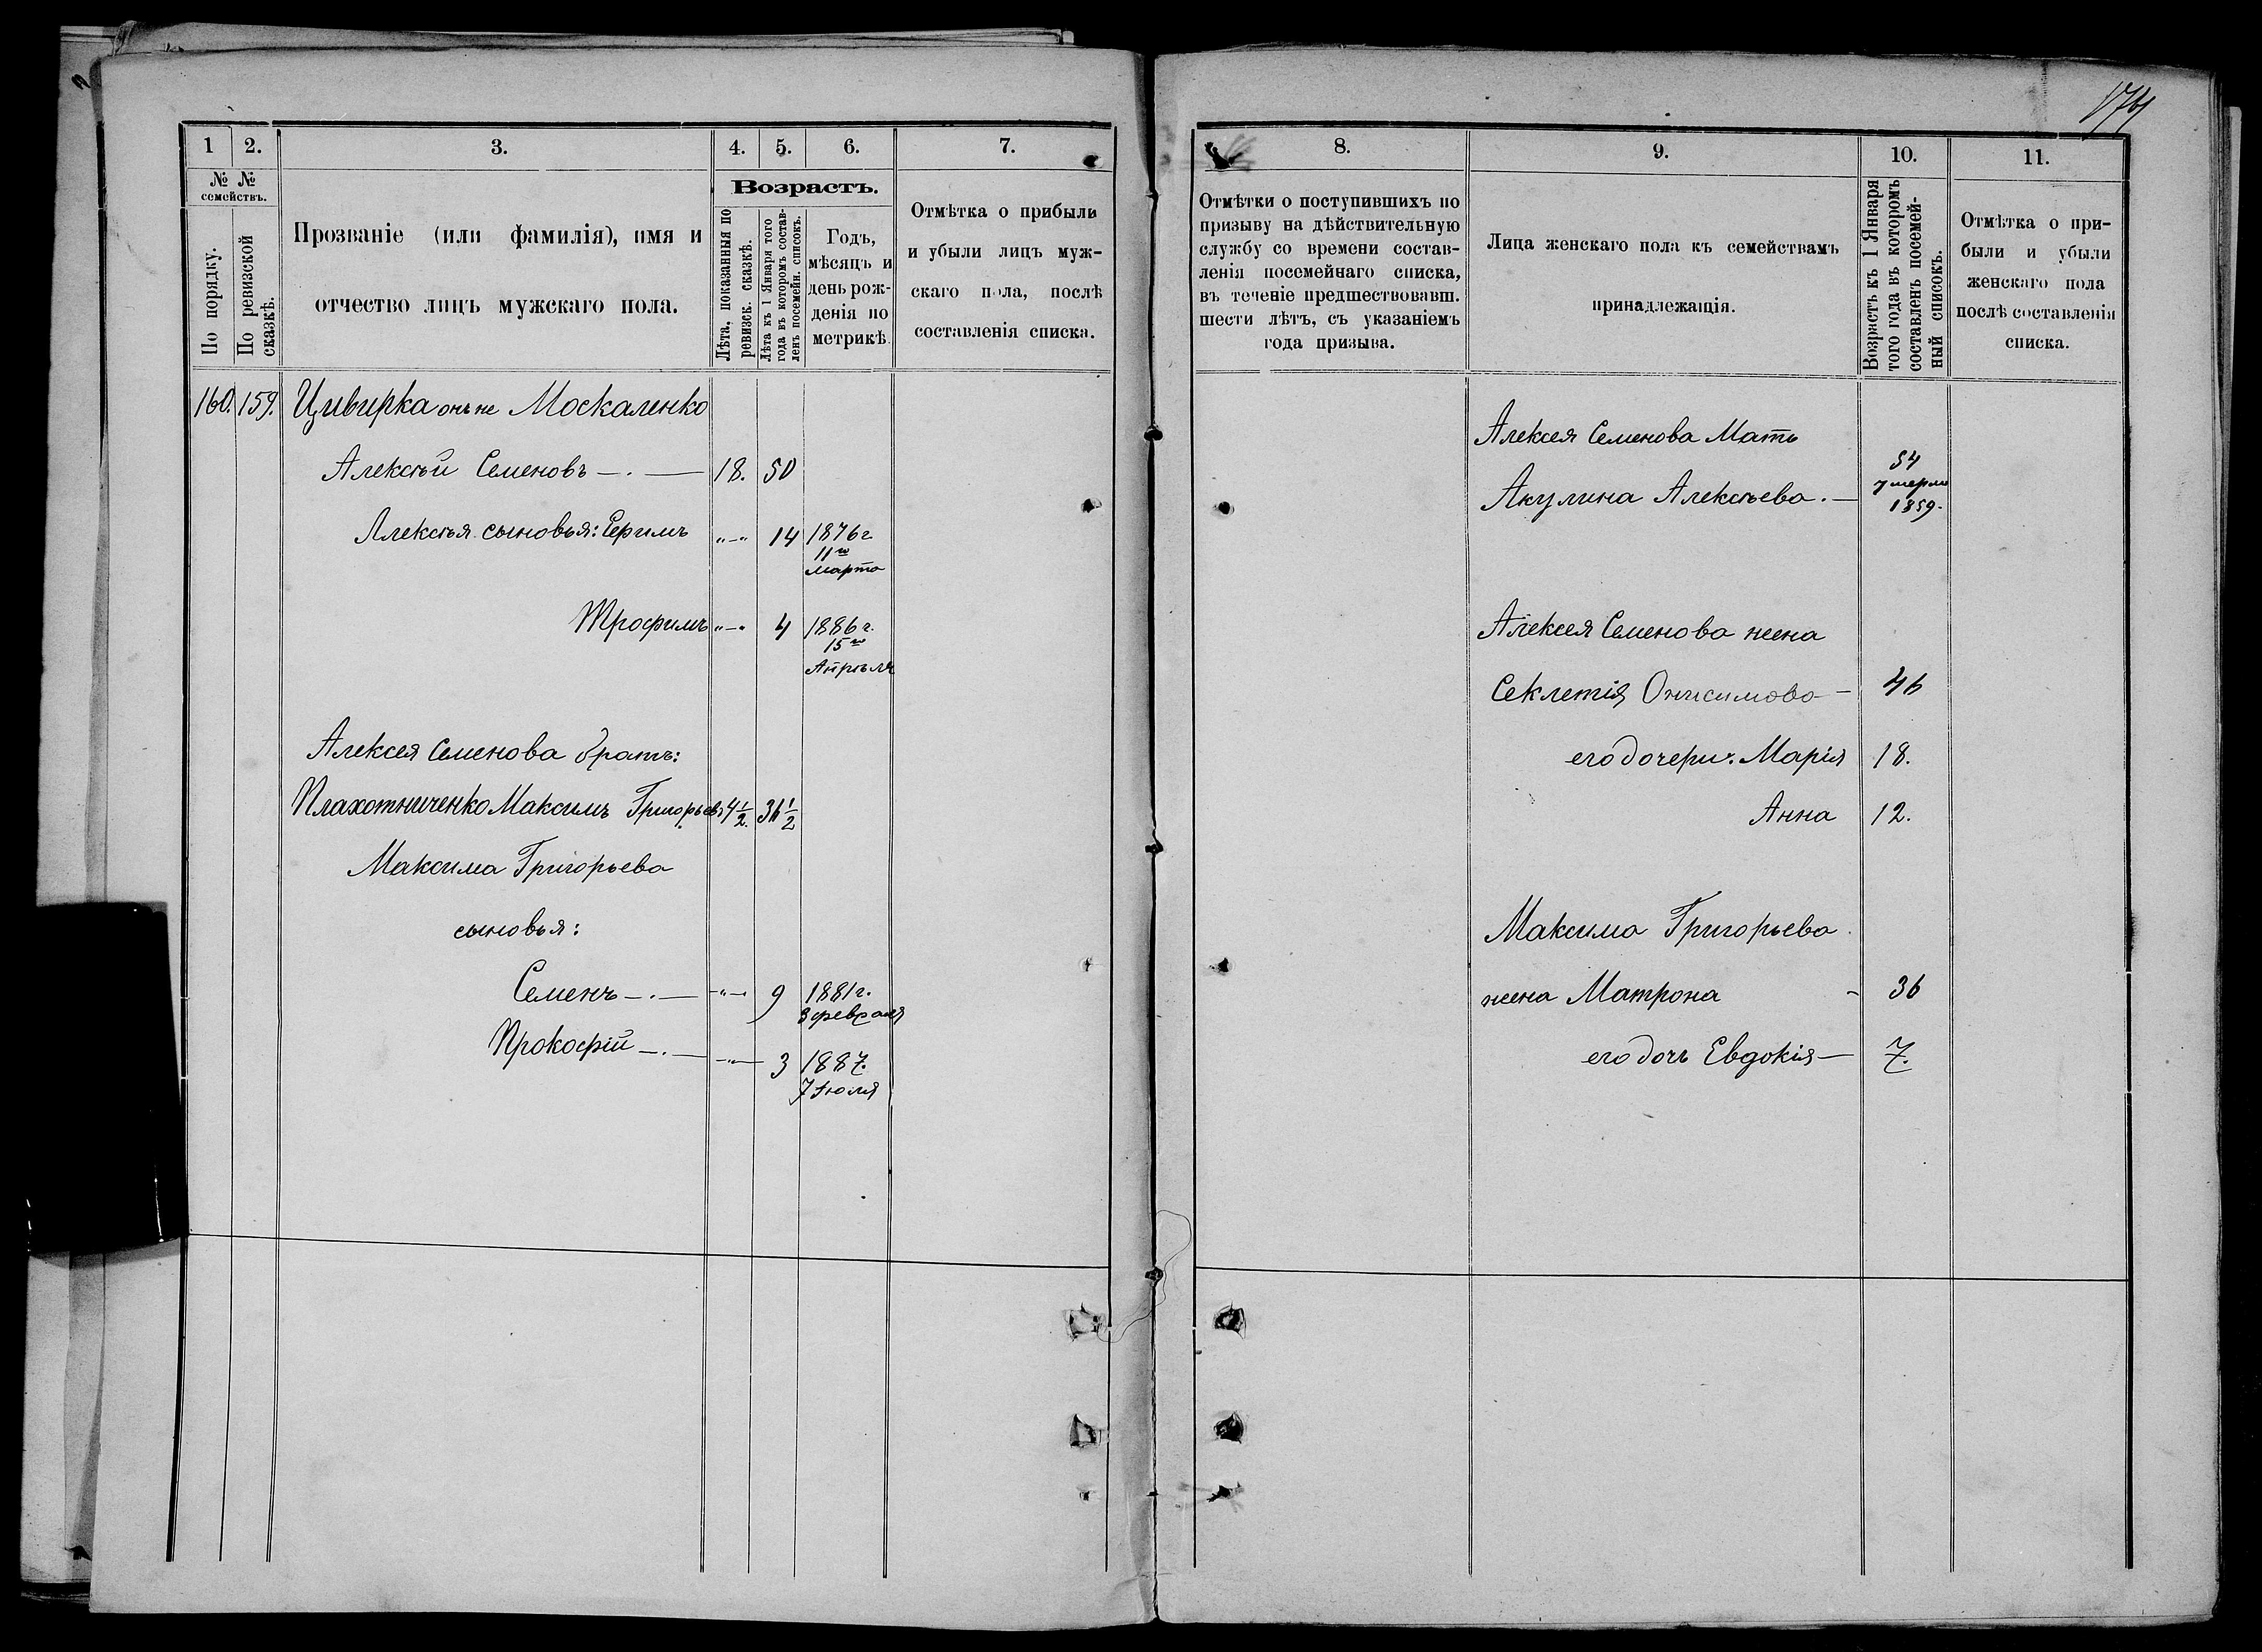 174
1 2. 3. 4. 5. 6. 7.
№ № семействъ.
По порядку.
По ревизской сказкѣ.
Прозваніе (или фамилія), имя и
отчество лицъ мужскаго пола.
Возрастъ.
Лѣта, показанныя по
ревизск. сказкѣ.
Лѣта къ 1 Января того
года въ которомъ состав-
ленъ посемейн. списокъ.
Годъ,
мѣсяцъ и
день рож-
денія по
метрикѣ.
Отмѣтка о прибыли
и убыли лицъ муж-
скаго пола, послѣ
составленія списка.
160. 159. Цивирка онъ же Москаленко
Алексѣй Семеновъ —.— 18. 50
Алексѣя сыновья: Ефимъ „—„ 14 1876 г.
11го
марта
Трофимъ „—„ 4 1886 г.
15го
Апрѣля
Алексея Семенова братъ:
Плахотниченко Максимъ Григорьев. 4 1/2. 36 1/2
Максима Григорьева
сыновья:
Семенъ —.— —„— 9 1881 г.
3 февраля
Прокофій —.— —„— 3 1887.
7 Іюля
8. 9. 10. 11.
Отмѣтки о поступившихъ по
призыву на дѣйствительную
службу со времени состав-
ленія посемейнаго списка,
въ теченіе предшествовавш.
шести лѣтъ, съ указаніемъ
года призыва.
Лица женскаго пола къ семействамъ
принадлежащія.
Возрастъ къ 1 Января
того года въ которомъ
составленъ посемей-
ный списокъ.
Отмѣтка о при-
были и убыли
женскаго пола
послѣ составленія
списка.
Алексея Семенова Мать
Акулина Алексѣева. — 54
умерла
1859.
Алексея Семенова жена
Секлетія Онисимова — 46
его дочери: Марія 18.
Анна 12.
Максима Григорьева
жена Матрона — 36
его дочь Евдокія — 7.